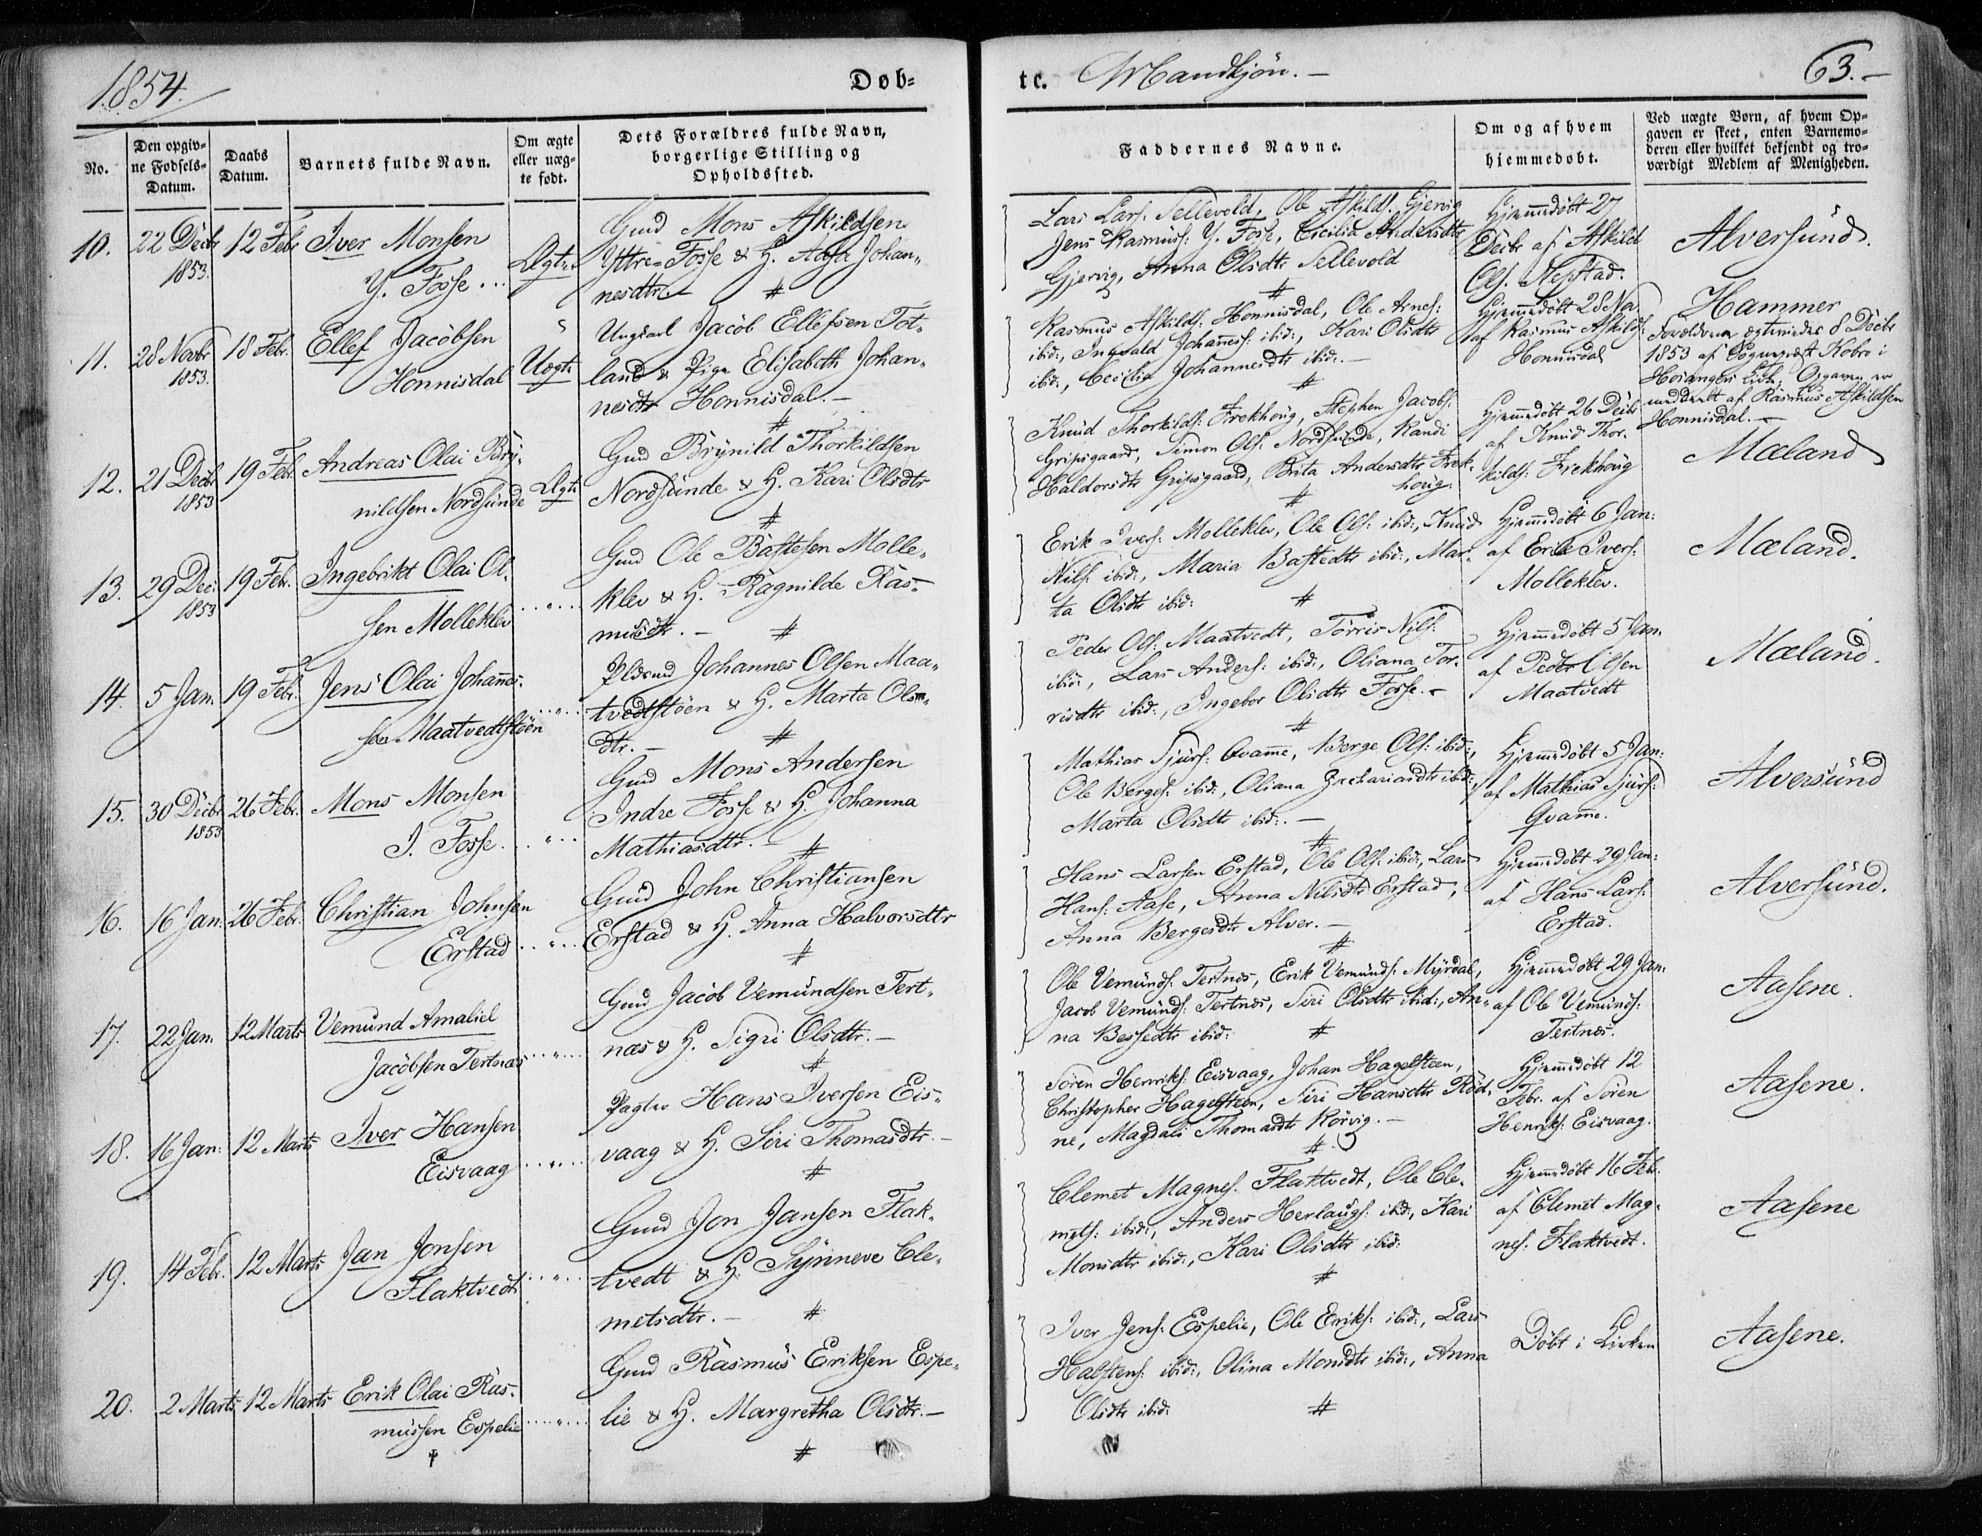 1854.
Døb=
tc. Mandkjön. –
63. –
No.
Den opgiv=
ne Fødsels=
Datum.
Daabs
Datum.
Barnets fulde Navn.
Om ægte
eller uæg=
te født.
Dets Forældres fulde Navn,
borgerlige Stilling og
Opholdssted.
Faddernes Navne.
Om og af hvem
hjemmedøbt.
Ved uægte Børn, af hvem Op=
gaven er skeet, enten Barnemo=
deren eller hvilket bekjendt og tro=
værdigt Medlem af Menigheden.
10. 22 Decbr 1853. 12 Febr Iver Monsen
Y. Fosse Ægte
Gmd Mons Askildsen
Yttre=Fosse & H. Aasa Johan=
nesdtr. #
Lars Lars: Sellevold, Ole Askilds: Gjervig
Jens Rasmus: Y. Fosse, Cecilia Andersdtr
Gjervig, Anna Olsdtr Sellevold
#
Hjemmedøbt 27
Decbr af Askild
Ols: Nepstad.
Alversund.
11. 28 Novbr 1853. 18 Febr. Ellef Jacobsen
Honnisdal Uægte
Ungkarl Jacob Ellefsen Tot=
land & Pige Elisabeth Johan=
nesdtr Honnisdal. –
#
Rasmus Askilds: Honnisdal, Ole Arnes:
ibid:, Ingvald Johannes: ibid:, Kari Olsdtr
ibid:, Cecilia Johannesdtr ibid:. –
#
Hjemmedøbt 28 No
af Rasmus Askilds:
Honnisdal
Hammer
Forældrene ægteviedes 8 Decbr
1853 af Sognepræst Kobro i
Hosangers Kirke. Opgaven er
meddeelt af Rasmus Askildsen
Honnisdal. –
12. 21 Decbr 1853 19 Febr. Andreas Olai Bry=
nildsen Nordsunde Ægte
Gmd Brynild Thorkildsen
Nordsunde & H. Kari Olsdtr
#
Knud Thorkilds: Frekhoug, Stephen Jacobs:
Gripsgaard, Simon Ols: Nordsunde, Randi
Haldorsdtr Gripsgaard, Brita Andersdtr Frek=
houg.
#
Hjemmedøbt 26 Decbr
af Knud Thor=
kilds: Frekhoug
Mæland
13. 29 Dec: 1853 19 Febr. Ingebrikt Olai Ol=
sen Molleklev
Gmd Ole Bastesen Molle=
klev & H. Ragnilde Ras=
musdtr. – #
Erik Ivers: Molleklev, Ole Ols: ibid:, Knud
Nils: ibid:, Maria Bastedtr ibid:, Mar=
ta Olsdtr ibid: #
Hjemmedøbt 6 Jan:
af Erik Ivers:
Molleklev.
Mæland.
14. 5 Jan. 19 Febr. Jens Olai Johannes=
sen Maatvedtstöen
Pldsmd Johannes Olsen Maa=
tvedtstöen & H. Marta Ols=
dtr. – #
Peder Ols: Maatvedt, Torris Nils:
ibid:, Lars Anders: ibid:, Oliana Tor=
risdtr ibid:, Ingebor Olsdtr Fosse. –
#
Hjemmedøbt 5 Jan.
af Peder Olsen
Maatvedt
Mæland.
15. 30 Decbr 1853 26 Febr. Mons Monsen
I. Fosse.
Gmd Mons Andersen
Indre Fosse & H. Johanna
Mathiasdtr. #
Mathias Sjurs: Qvamme, Berge Ols: ibid:,
Ole Berges: ibid:, Oliana Zachariasdtr ibid:,
Marta Olsdtr ibid:. –
#
Hjemmedøbt 5 Jan:
af Mathias Sjurs:
Qvamme.
Alversund
16. 16 Jan. 26 Febr. Christian Johnsen
Erstad
Gmd John Christiansen
Erstad & H. Anna Halvorsdtr
#
Hans Larsen Erstad, Ole Ols: ibid:, Lars
Hans: Aase, Anna Nilsdtr Erstad,
Anna Bergesdtr Alver. –
#
Hjemmedøbt 29 Jan:
af Hans Lars:
Erstad.
Alversund.
17. 22 Jan. 12 Marts Vemund Amaliel
Jacobsen Tertnæs
Gmd Jacob Vemundsen Tert=
næs & H. Sigri Olsdtr. –
#
Ole Vemunds: Tertnæs, Erik Vemunds: Myrdal,
Jacob Vemunds: Tertnæs, Siri Olsdtr ibid:, An=
na Bessedtr ibid: #
Hjemmedøbt 29 Jan:
af Ole Vemunds:
Tertnæs.
Aasene.
18. 16 Jan: 12 Marts Iver Hansen
Eisvaag
Pagter Hans Iversen Eis=
vaag & H. Siri Thomasdtr. –
#
Sören Henriks: Eisvaag, Johan Hagelsteen,
Christopher Hagelsteen, Siri Hansdtr Röd=
ne, Magdali Thomasdtr Rörvig. –
#
Hjemmedøbt 12
Febr. af Sören
Henriks: Eisvaag.
Aasene.
19. 14 Febr. 12 Marts Jan Jonsen
Flaktvedt
Gmd Jon Jansen Flak=
tvedt & H. Synneve Cle=
metsdtr. – #
Clemet Magnes: Flaktvedt, Ole Cle=
mets: ibid:, Anders Herlaugs: ibid:, Kari
Monsdtr ibid:, Kari Olsdtr ibid:
#
Hjemmedøbt 16 Febr.
af Clemet Mag=
nes: Flaktvedt.
Aasene
20. 2 Marts 12 Marts Erik Olai Ras=
mussen Espelie
†
Gmd Rasmus Eriksen Espe=
lie & H. Margretha Olsdtr. –
#
Iver Jens: Espelie, Ole Eriks: ibid:, Lars
Halstens: ibid:, Olina Monsdtr ibid:, Anna
Olsdtr ibid: #
Døbt i Kirken
Aasene.